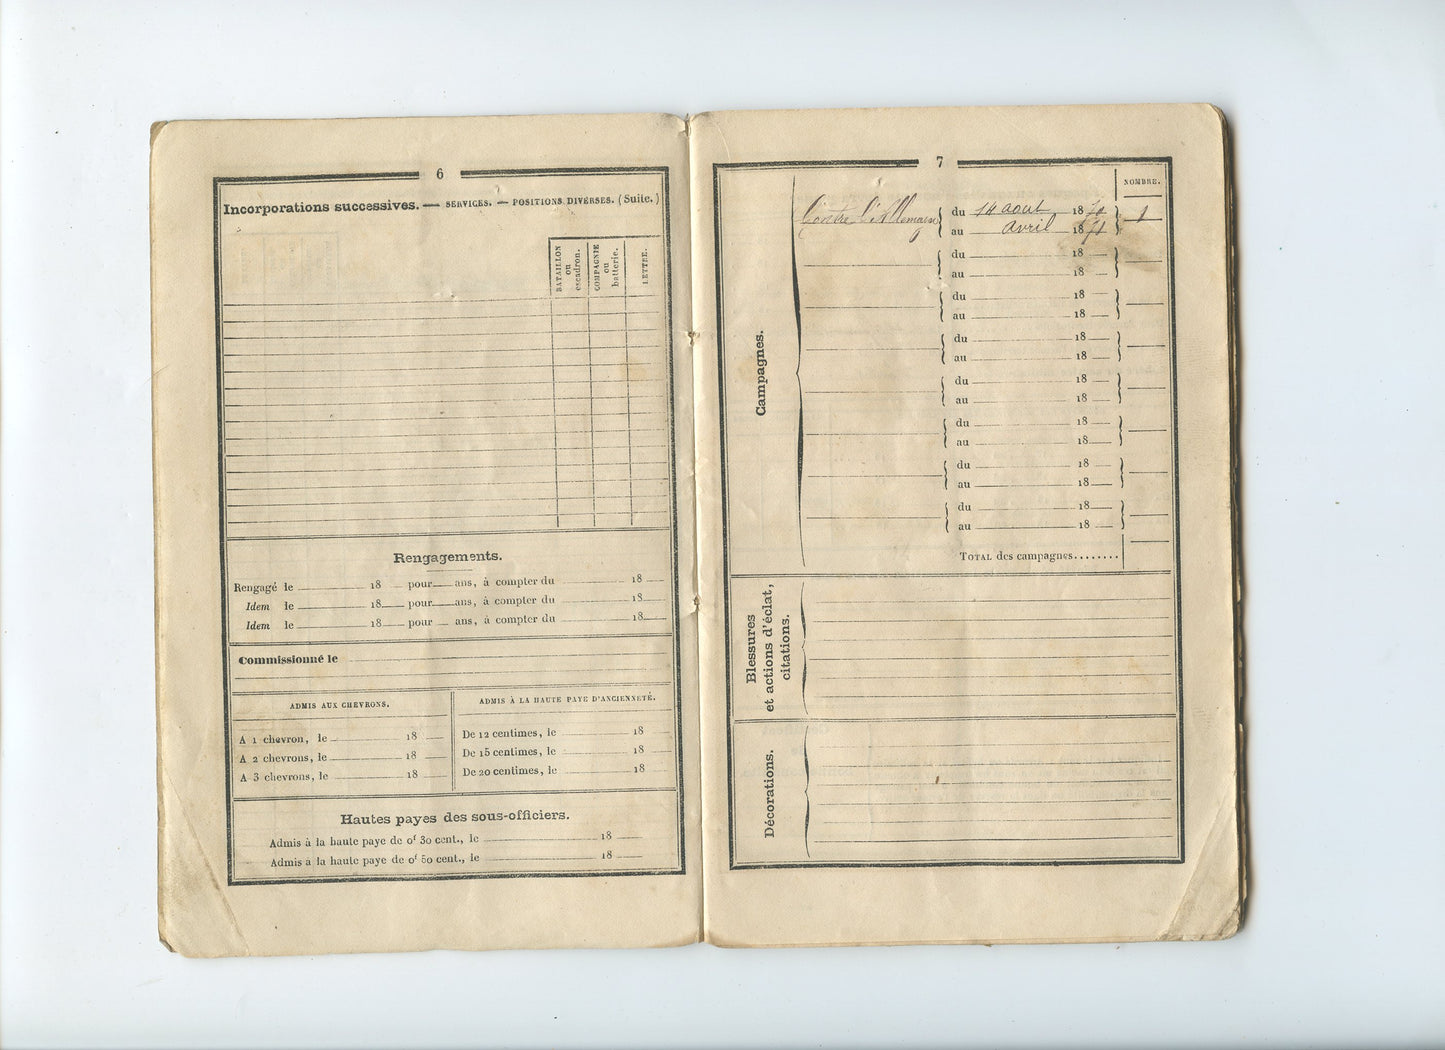 6
Incorporations successives. — SERVICES. — POSITIONS DIVERSES. (Suite.)
BATAILLON ou escadron.
COMPAGNIE ou batterie.
LETTRE.
Rengagements.
Rengagé le 18 pour ans, à compter du 18
Idem le 18 pour ans, à compter du 18
Idem le 18 pour ans, à compter du 18
Commissionné le
ADMIS AUX CHEVRONS.
A 1 chevron, le 18
A 2 chevrons, le 18
A 3 chevrons, le 18
ADMIS À LA HAUTE PAYE D'ANCIENNETÉ.
De 12 centimes, le 18
De 15 centimes, le 18
De 20 centimes, le 18
Hautes payes des sous-officiers.
Admis à la haute paye de 0f 30 cent., le 18
Admis à la haute paye de 0f 50 cent., le 18
7
NOMBRE.
Campagnes.
Contre l'Allemagne
du 14 aout 1870
au avril 1871
1
du 18
au 18
du 18
au 18
du 18
au 18
du 18
au 18
du 18
au 18
du 18
au 18
du 18
au 18
TOTAL des campagnes........
Blessures
et actions d'éclat,
citations.
Décorations.